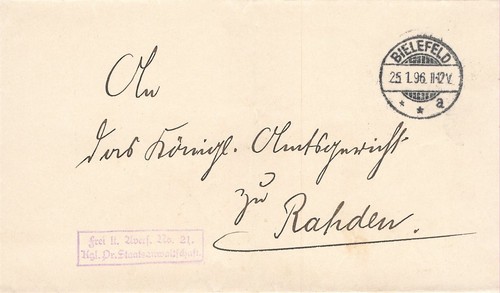 BIELEFELD
25.1.96.11-12V.
* * a
An
das Königl. Amtsgericht
zu
Rahden.
Frei lt. Avers. No. 21.
Kgl. Pr. Staatsanwaltschaft.